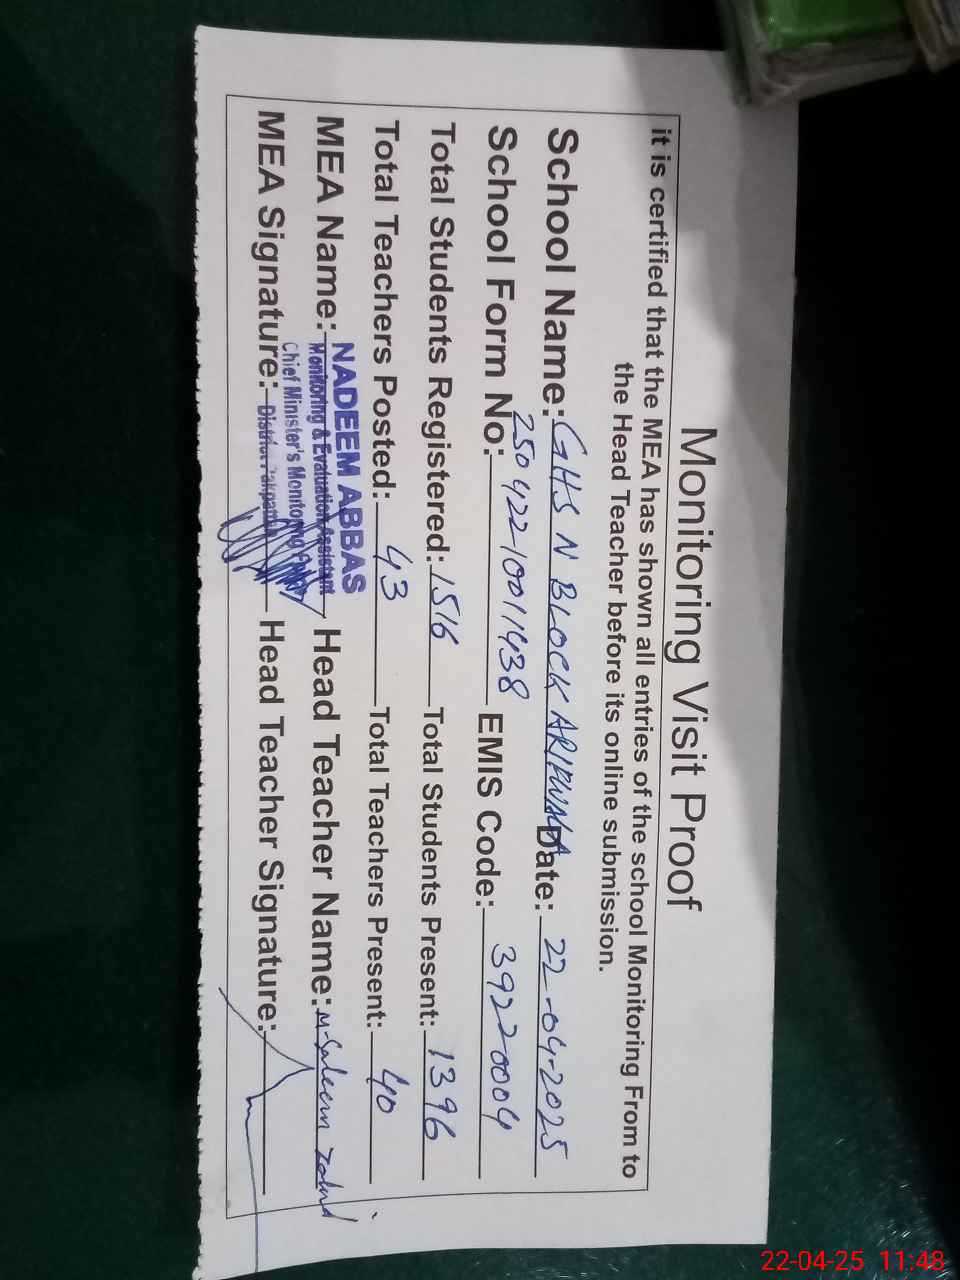 Monitoring Visit Proof
it is certified that the MEA has shown all entries of the school Monitoring From to
the Head Teacher before its online submission.
School Name: GHS N BLOCK ARIFWALA Date: 22-04-2025
School Form No: 250422-10011438 EMIS Code: 39220004
Total Students Registered: 1516 Total Students Present: 1396
Total Teachers Posted: 43 Total Teachers Present: 40
MEA Name: NADEEM ABBAS Head Teacher Name: M-Saleem
Monitoring & Evaluation Assistant
Chief Minister's Monitoring
MEA Signature: District Pakpattan Head Teacher Signature:
22-04-25 11:48